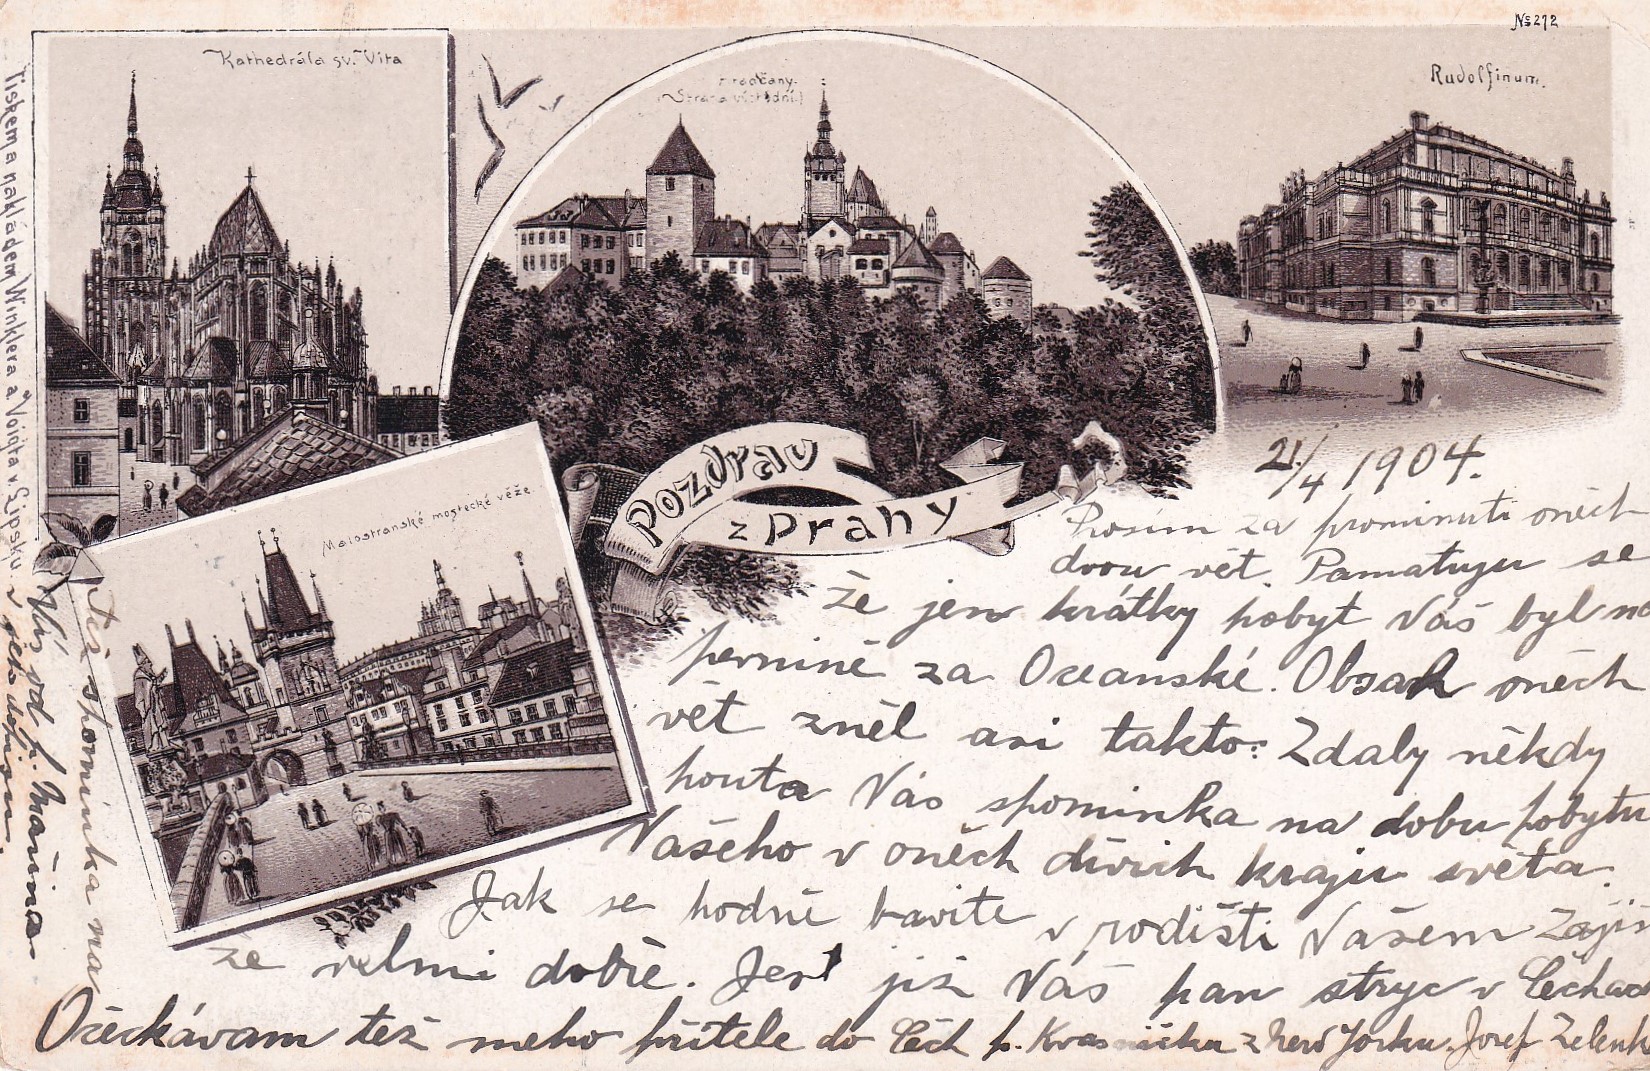 № 272
Kathedrála sv. Víta
Hradčany.
(Strana východní.)
Rudolfinum.
Tiskem a nakladem Winklera a Voigta v Lipsku
Malostranské mostecké věže.
Pozdrav
z Prahy
21/4 1904.
Prosím za prominutí oněch
dvou vět. Pamatuju se
že jen krátky pobyt Váš byl na
pevnině za Oceanské. Obsah oněch
vět zněl asi takto: Zdaby někdy
pouta Vás spominka na dobu pobytu
Vašeho v oněch divich kraju světa.
Jak se hodně bavite v rodišti Vašem Zajis
že velmi dobře. Jest již Váš pan stryc v Čechach
Očeckávam též meho přitele do Čech p. Krasničku z New Yorku. Josef Zelenk
Těš spominka na
Vás od p. Mařina